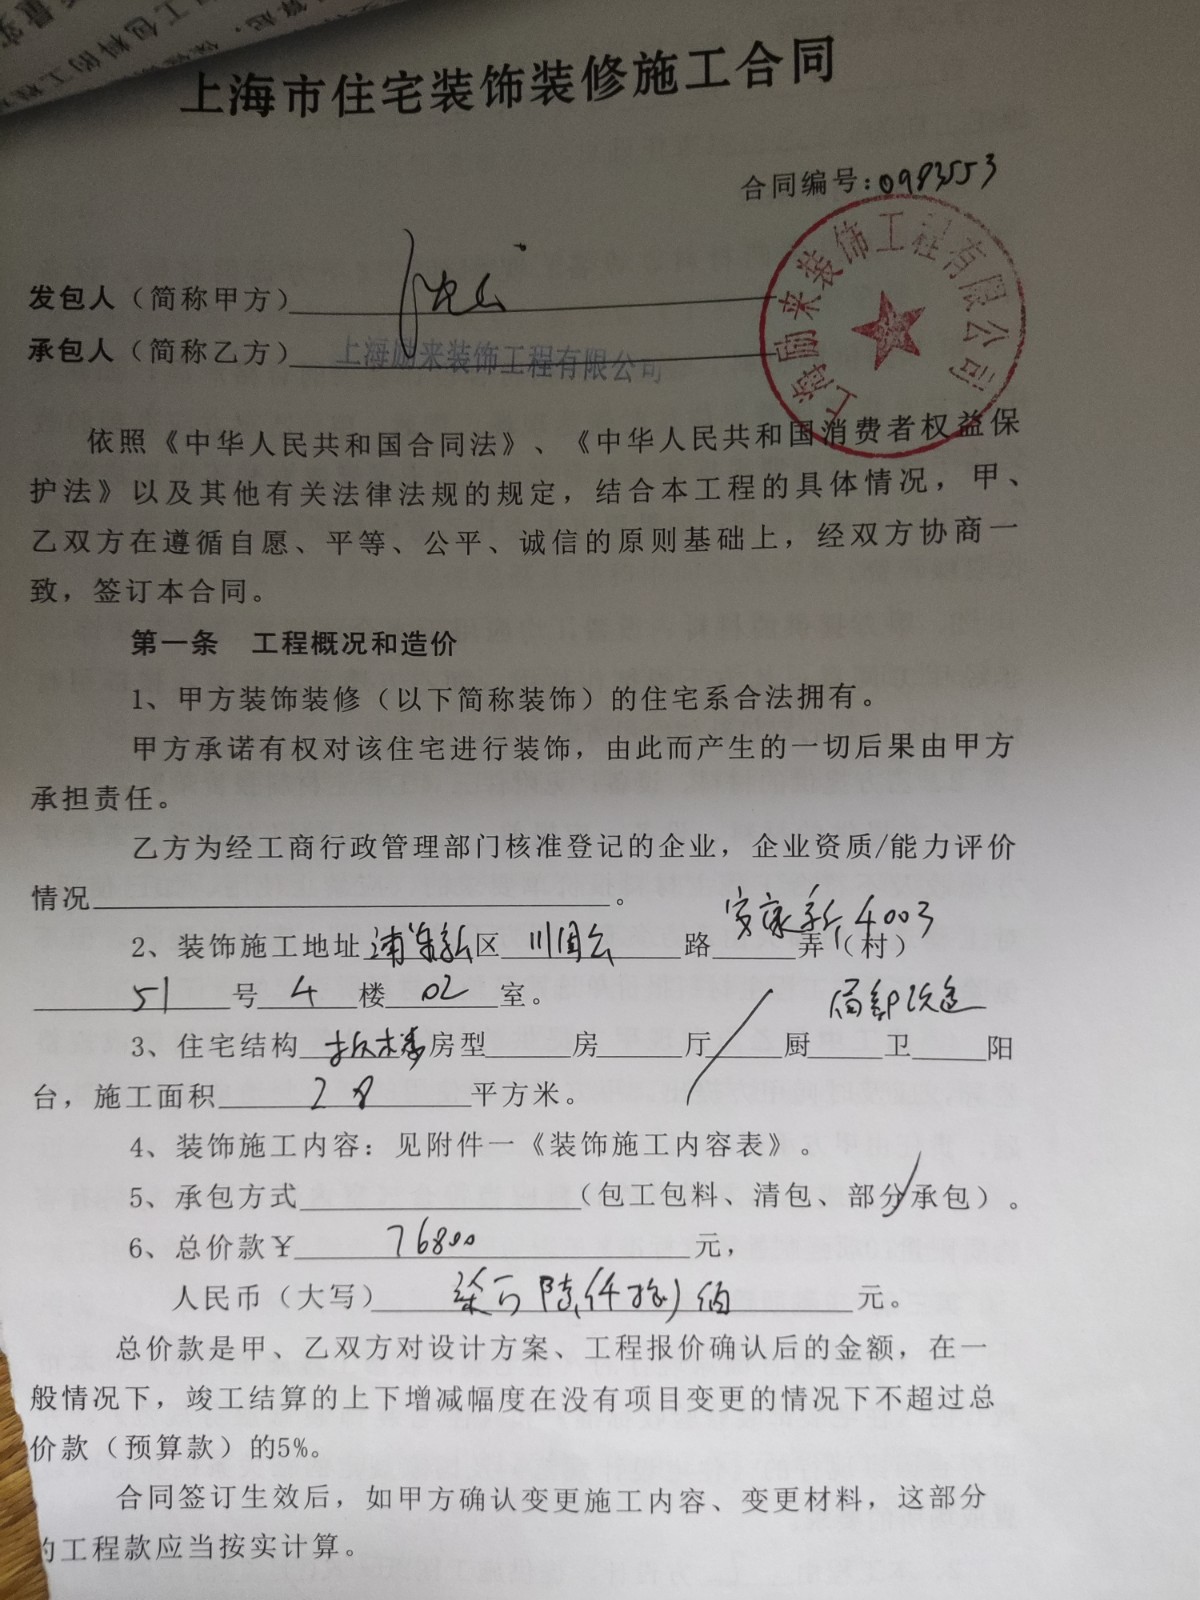 上海市住宅装饰装修施工合同
合同编号:0983553
发包人（简称甲方）
承包人（简称乙方）上海励来装饰工程有限公司
上海励来装饰工程有限公司
依照《中华人民共和国合同法》、《中华人民共和国消费者权益保
护法》以及其他有关法律法规的规定，结合本工程的具体情况，甲、
乙双方在遵循自愿、平等、公平、诚信的原则基础上，经双方协商一
致，签订本合同。
第一条 工程概况和造价
1、甲方装饰装修（以下简称装饰）的住宅系合法拥有。
甲方承诺有权对该住宅进行装饰，由此而产生的一切后果由甲方
承担责任。
乙方为经工商行政管理部门核准登记的企业，企业资质/能力评价
情况。
2、装饰施工地址浦东新区川周公路4003弄（村）
51号4楼02室。
局部改造
3、住宅结构房型房厅厨卫阳
台，施工面积28平方米。
4、装饰施工内容：见附件一《装饰施工内容表》。
5、承包方式（包工包料、清包、部分承包）。
6、总价款￥76800元，
人民币（大写）柒万陆仟捌佰元。
总价款是甲、乙双方对设计方案、工程报价确认后的金额，在一
般情况下，竣工结算的上下增减幅度在没有项目变更的情况下不超过总
价款（预算款）的5%。
合同签订生效后，如甲方确认变更施工内容、变更材料，这部分
的工程款应当按实计算。